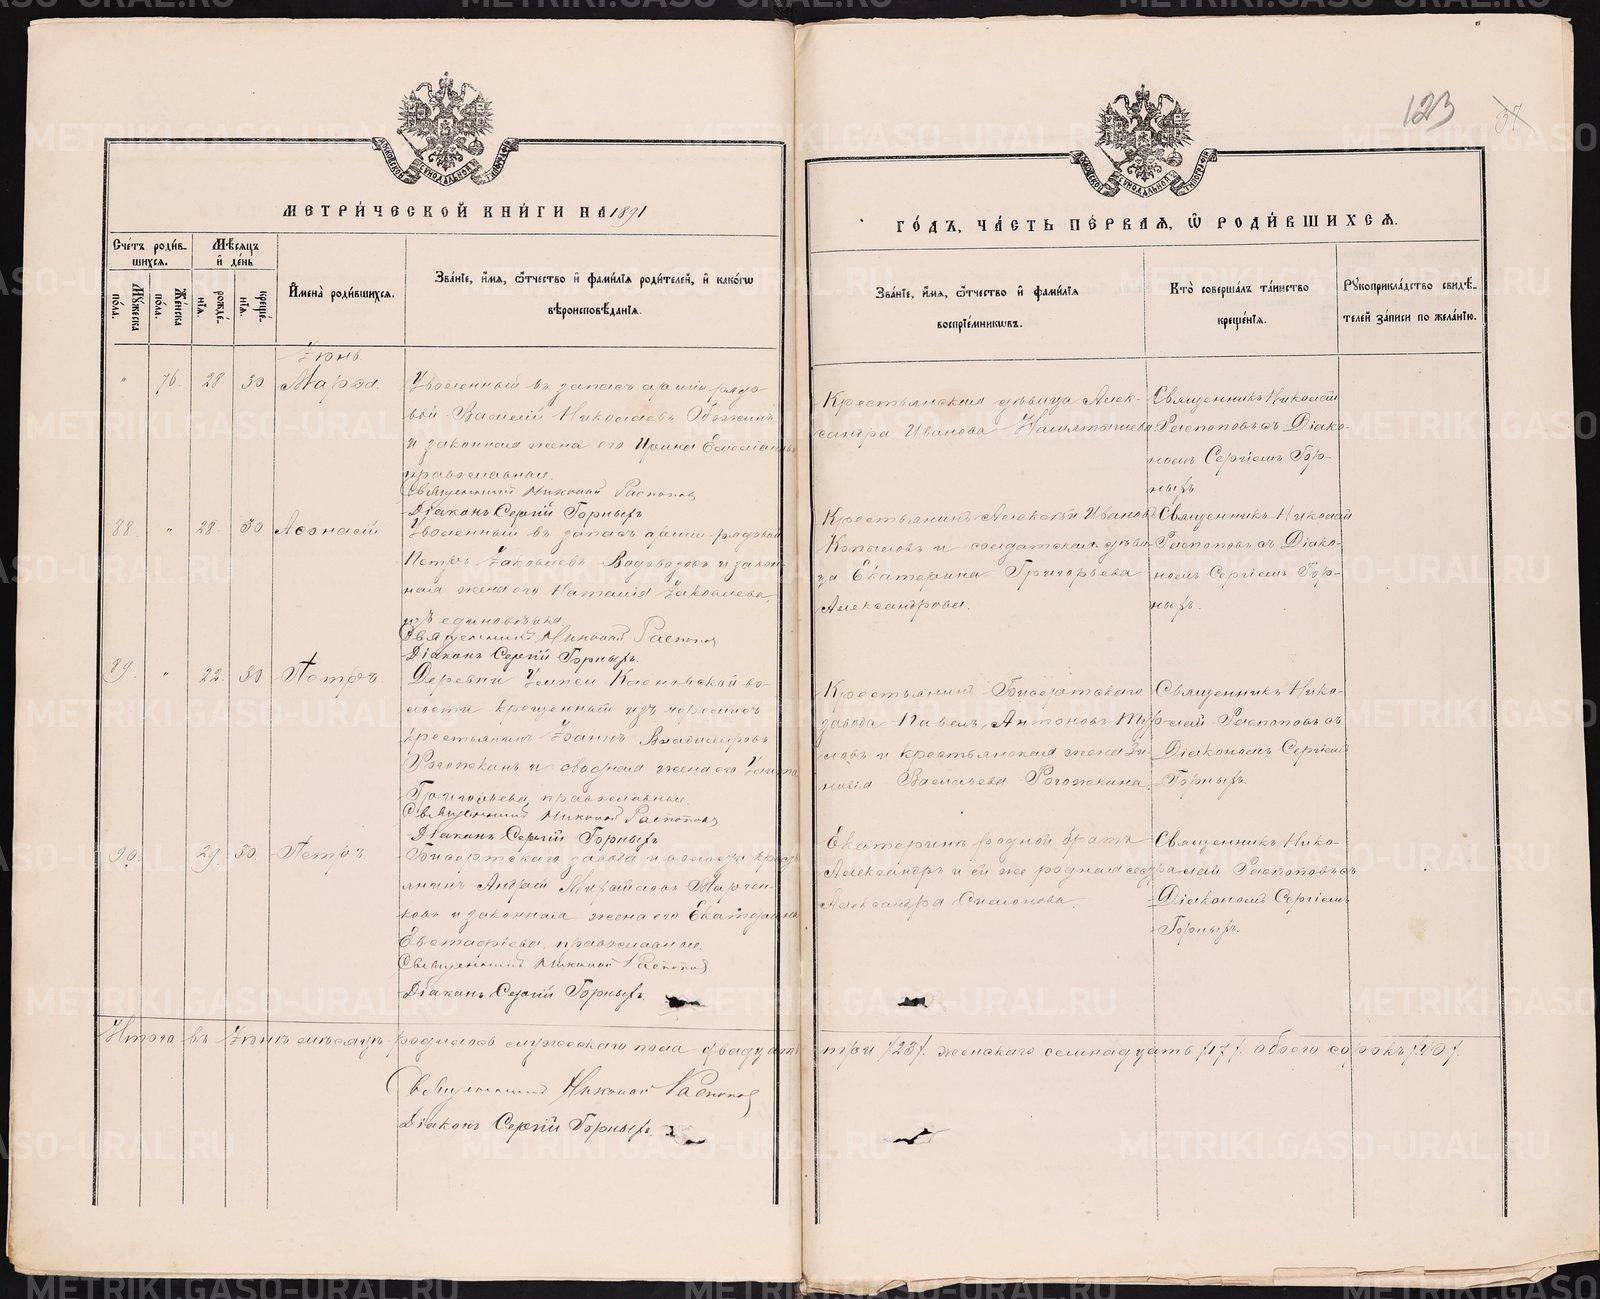 123
37
МОСКОВСКОЙ СѴНОДАЛЬНОЙ ТИПОГРАФІИ
МОСКОВСКОЙ СѴНОДАЛЬНОЙ ТИПОГРАФІИ
МЕТРИ́ЧЕСКОЙ КНИ́ГИ НА 1891
ГО́ДЪ, ЧА́СТЬ ПЕ́РВАЯ, Ѡ РОДИ́ВШИХСЯ.
Сче́тъ роди́вшихся.
Му́жеска по́ла.
Же́нска по́ла.
Мѣ́сяцъ и҆ де́нь
рожде́нїя.
креще́нїя.
И҆мена̀ роди́вшихся.
Зва́нїе, и҆́мя, ѻ҆́тчество и҆ фами́лїя роди́телей, и҆ како́гѡ
вѣроисповѣ́данїя.
Зва́нїе, и҆́мя, ѻ҆́тчество и҆ фами́лїя
воспрїе́мникѡвъ.
Кто̀ соверша́лъ та́инство
креще́нїя.
Рꙋкоприкла́дство свидѣ́-
телей за́писи по жела́нїю.
Іюнь
" 76. 28 30 Марѳа.
Уволенный въ запасъ арміи рядо-
вой Василій Николаевъ
и законная жена его Ирина Емеліанова
православные.
Священникъ Николай Распоповъ
Діаконъ Сергій Горныхъ
Крестьянская дѣвица Алек-
сандра Иванова
Священникъ Николай
Распоповъ съ Діако-
номъ Сергіемъ Гор-
ныхъ
88 " 28. 30 Аѳонасій
Уволенный въ запасъ арміи рядовой
Петръ Іаковлевъ Водовозовъ и закон-
ная жена его Наталія Іаковлева,
Священникъ Николай Распоповъ
Діаконъ Сергій Горныхъ.
Крестьянинъ Алексѣй Ивановъ
Копыловъ и солдатская дѣви-
ца Екатерина Григорьева
Александрова.
Священникъ Николай
Распоповъ съ Діако-
номъ Сергіемъ Гор-
ныхъ.
89. " 22. 30 Петръ
Деревни во-
лости крещенный изъ
крестьянинъ Іоаннъ Владиміровъ
и сводная жена его
Григорьева, православные.
Священникъ Николай Распоповъ
Діаконъ Сергій Горныхъ
Крестьянинъ Бисертскаго
завода Павелъ Антоновъ
и крестьянская жена Зи-
новія Васильева Рогожкина.
Священникъ Нико-
лай Распоповъ съ
Діакономъ Сергіемъ
Горныхъ.
90. 29. 30. Петръ
Бисертскаго завода и волости кресть-
янинъ Андрей Михайловъ
и законная жена его Екатерина
Евстафіева, православные.
Священникъ Николай Распоповъ
Діаконъ Сергій Горныхъ.
Екатеринѣ родной братъ
Александръ и ей же родная сестра
Александра Симонова.
Священникъ Нико-
лай Распоповъ съ
Діакономъ Сергіемъ
Горныхъ.
Итого въ Іюнѣ мѣсяцѣ родилось мужескаго пола двадцать три /23/. женскаго семнадцать /17/. обоего сорокъ /40/.
Священникъ Николай Распоповъ
Діаконъ Сергій Горныхъ.
METRIKI.GASO-URAL.RU